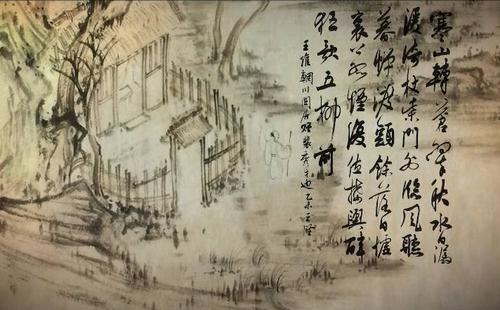 寒山轉蒼翠秋水日潺
湲倚杖柴門外臨風聽
暮蟬渡頭餘落日墟
裏上孤煙復值接輿醉
狂歌五柳前
王維輞川閑居贈裴秀才迪乙未王